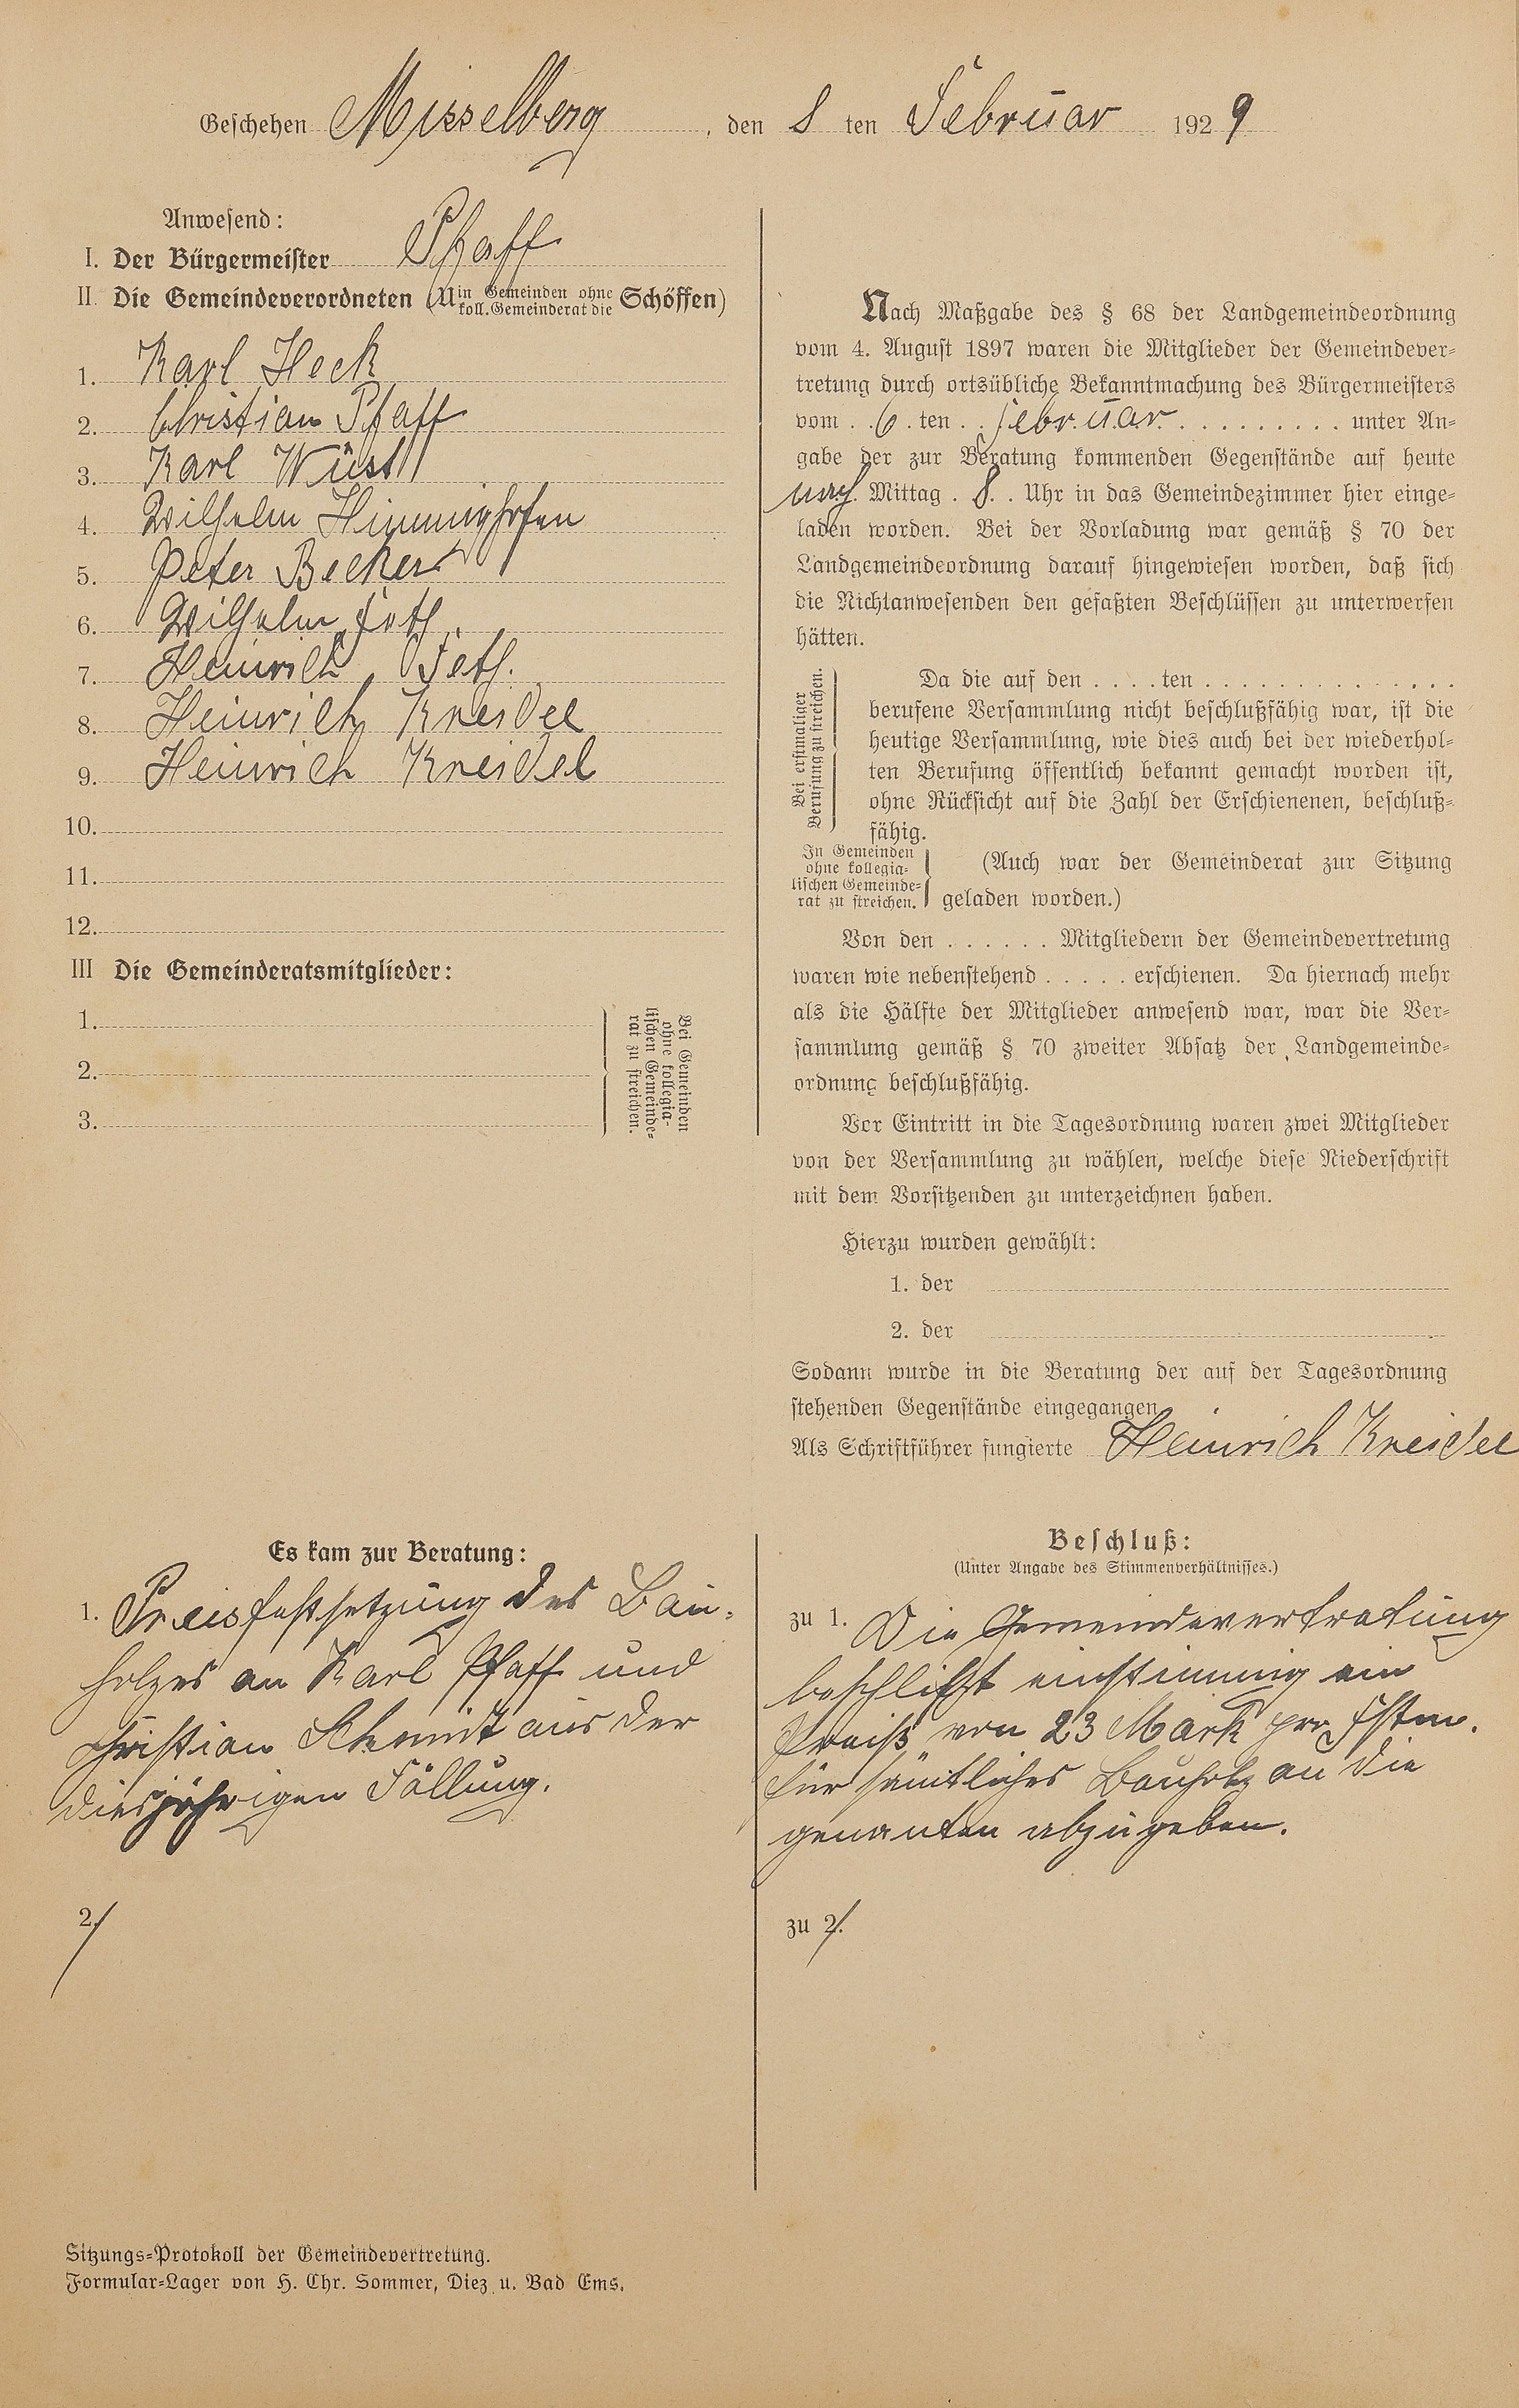 Geschehen Misselberg, den 8 ten Februar 1929
Anwesend:
I. Der Bürgermeister Pfaff
II. Die Gemeindeverordneten (U in Gemeinden ohne koll. Gemeinderat die Schöffen)
1. Karl Heck
2. Christian Pfaff
3. Karl Wüst
4. Wilhelm Himmighofen
5. Peter Becker
6. Wilhelm Feth.
7. Heinrich Feth.
8. Heinrich Kneidel
9. Heinrich Kneidel
10.
11.
12.
III Die Gemeinderatsmitglieder:
1.
2.
3.
Bei Gemeinden
ohne kollegia-
lischen Gemeinde-
rat zu streichen.
Nach Maßgabe des § 68 der Landgemeindeordnung
vom 4. August 1897 waren die Mitglieder der Gemeindever-
tretung durch ortsübliche Bekanntmachung des Bürgermeisters
vom 6. ten Februar unter An-
gabe der zur Beratung kommenden Gegenstände auf heute
nach Mittag 8 Uhr in das Gemeindezimmer hier einge-
laden worden. Bei der Vorladung war gemäß § 70 der
Landgemeindeordnung darauf hingewiesen worden, daß sich
die Nichtanwesenden den gefaßten Beschlüssen zu unterwerfen
hätten.
Bei erstmaliger
Berufung zu streichen.
Da die auf den . . . . ten . . . . . . . . . . . . . .
berufene Versammlung nicht beschlußfähig war, ist die
heutige Versammlung, wie dies auch bei der wiederhol-
ten Berufung öffentlich bekannt gemacht worden ist,
ohne Rücksicht auf die Zahl der Erschienenen, beschluß-
fähig.
In Gemeinden
ohne kollegia-
lischen Gemeinde-
rat zu streichen.
(Auch war der Gemeinderat zur Sitzung
geladen worden.)
Von den . . . . . . Mitgliedern der Gemeindevertretung
waren wie nebenstehend . . . . . erschienen. Da hiernach mehr
als die Hälfte der Mitglieder anwesend war, war die Ver-
sammlung gemäß § 70 zweiter Absatz der Landgemeinde-
ordnung beschlußfähig.
Vor Eintritt in die Tagesordnung waren zwei Mitglieder
von der Versammlung zu wählen, welche diese Niederschrift
mit dem Vorsitzenden zu unterzeichnen haben.
Hierzu wurden gewählt:
1. der
2. der
Sodann wurde in die Beratung der auf der Tagesordnung
stehenden Gegenstände eingegangen
Als Schriftführer fungierte Heinrich Kneidel
Es kam zur Beratung:
1. Preisfestsetzung des Bau-
holzes an Karl Pfaff und
Christian Schmidt aus der
diesjährigen Fällung.
2.
Beschluß:
(Unter Angabe des Stimmenverhältnisses.)
zu 1. Die Gemeindevertretung
beschließt einstimmig ein
Preiß von 23 Mark pro Fstm.
für sämtliches Bauholz an die
genanten abzugeben.
zu 2.
Sitzungs-Protokoll der Gemeindevertretung.
Formular-Lager von H. Chr. Sommer, Diez u. Bad Ems.